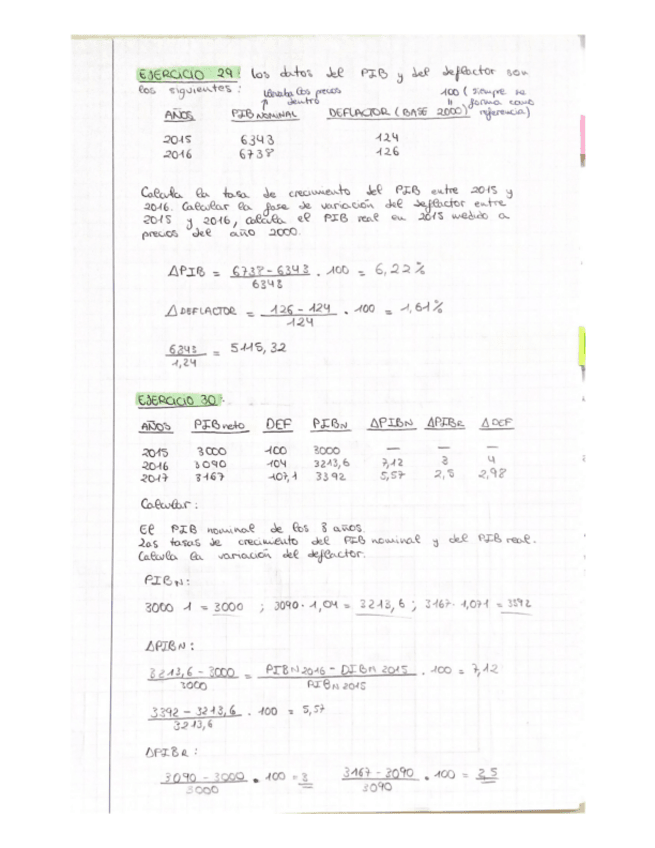 EJERCICIO 29: los datos del PIB y del deflactor son
los siguientes:
levanta los precos
dentro
100 (siempre se
forma como
referencia)
AÑOS PIB NOMINAL DEFLACTOR (BASE 2000)
2015 6343 124
2016 6738 126
Calcula la tasa de crecimiento del PIB entre 2015 y
2016. Calcular la fase de variación del deflactor entre
2015 y 2016, calcula el PIB real en 2015 medido a
precios del año 2000.
ΔPIB = 6738 - 6343 / 6343 · 100 = 6,22%
Δ DEFLACTOR = 126 - 124 / 124 · 100 = 1,61%
6343 / 1,24 = 5115,32
EJERCICIO 30:
AÑOS PIB neto DEF PIBN ΔPIBN ΔPIBR Δ DEF
2015 3000 100 3000 — — —
2016 3090 104 3213,6 7,12 3 4
2017 3167 107,1 3392 5,57 2,5 2,98
Calcular:
El PIB nominal de los 3 años.
Las tasas de crecimiento del PIB nominal y del PIB real.
Calcula la variación del deflactor.
PIBN:
3000 · 1 = 3000 ; 3090 · 1,04 = 3213,6 ; 3167 · 1,071 = 3392
ΔPIBN:
3213,6 - 3000 / 3000 = PIBN 2016 - PIBN 2015 / PIBN 2015 · 100 = 7,12
3392 - 3213,6 / 3213,6 · 100 = 5,57
ΔPIBR:
3090 - 3000 / 3000 · 100 = 3 3167 - 3090 / 3090 · 100 = 2,5